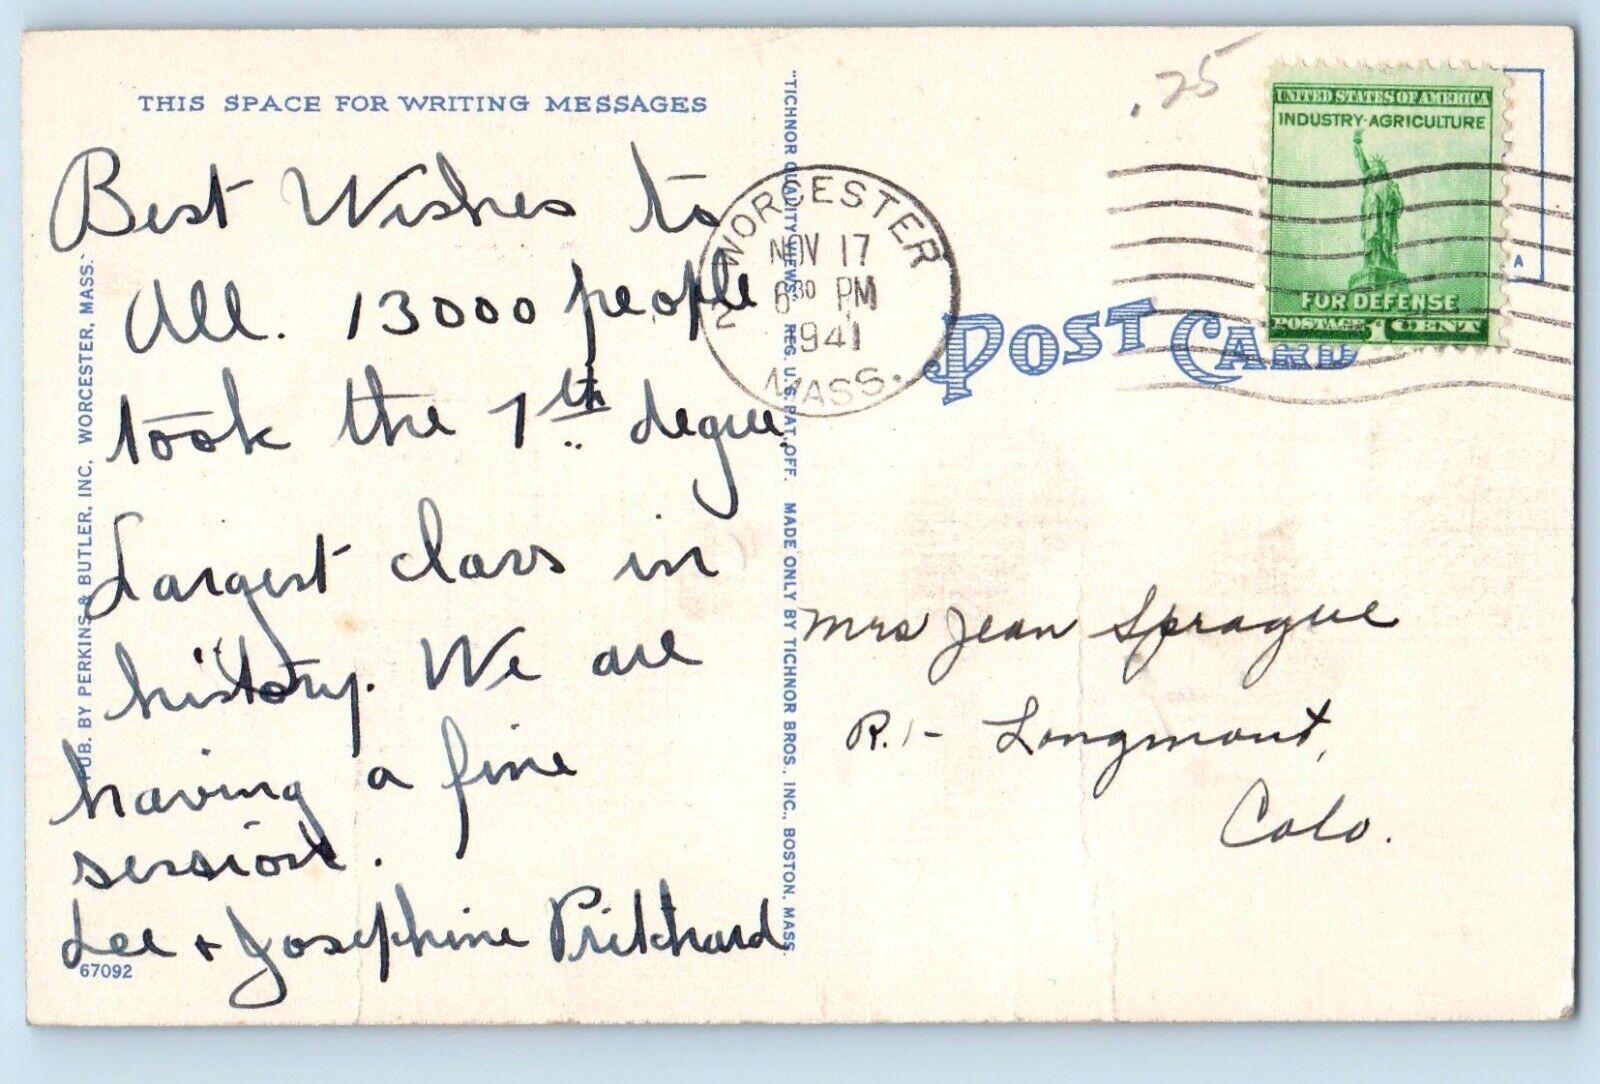 THIS SPACE FOR WRITING MESSAGES
Best Wishes to
All. 13000 people
took the 7th degree.
Largest class in
history. We are
having a fine
session.
Lee + Josephine Pritchard
67092
PUB. BY PERKINS & BUTLER, INC. WORCESTER, MASS.
"TICHNOR QUALITY VIEWS," REG. U.S. PAT. OFF. MADE ONLY BY TICHNOR BROS., INC., BOSTON, MASS.
WORCESTER
2
NOV 17
6 30 PM
1941
MASS.
.25
UNITED STATES OF AMERICA
INDUSTRY·AGRICULTURE
FOR DEFENSE
POSTAGE 1 CENT
A
POST CARD
Mrs Jean Sprague
R. 1- Longmont,
Colo.